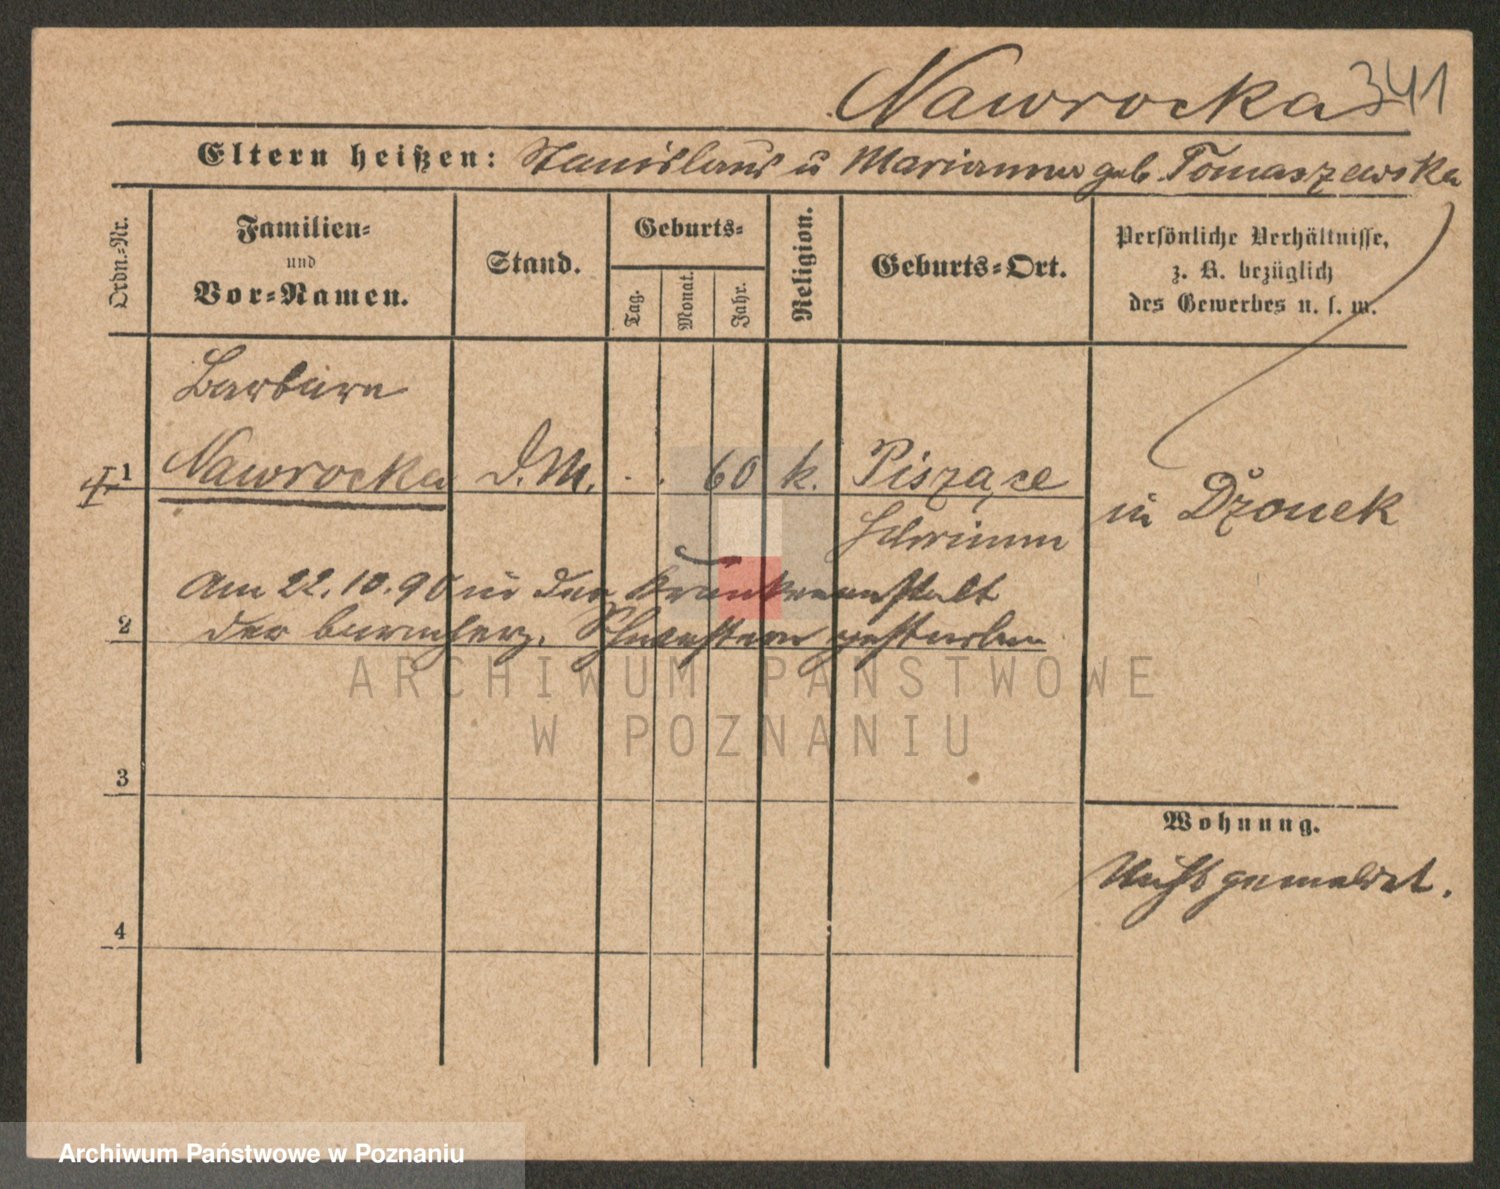 Nawrocka 341
Eltern heißen: Stanislaus u Marianna geb Tomaszewska
Ordn.-Nr.
Familien-
und
Vor-Namen.
Stand.
Geburts-
Tag.
Monat.
Jahr.
Religion.
Geburts-Ort.
Persönliche Verhältnisse,
z. B. bezüglich
des Gewerbes u. s. w.
Barbara
1 Nawrocka D.M. . . 60 k. Piszące
Schrimm
in Dzonek
Am 22.10.90 in der Krankenanstalt
2 der barmherz. Schwestern gestorben
ARCHIWUM PAŃSTWOWE
W POZNANIU
3
Wohnung.
Nicht gemeldet.
4
Archiwum Państwowe w Poznaniu